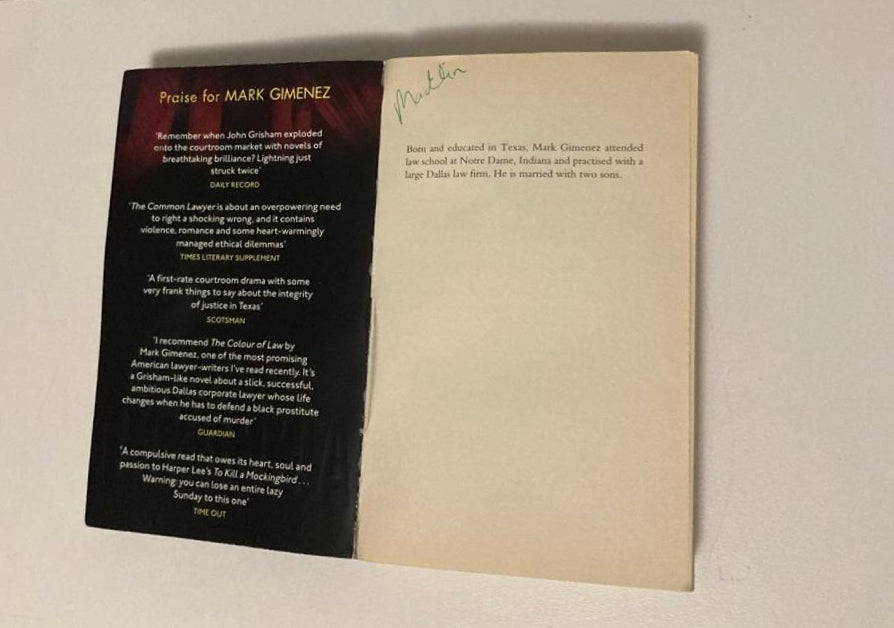 Praise for MARK GIMENEZ
'Remember when John Grisham exploded
onto the courtroom market with novels of
breathtaking brilliance? Lightning just
struck twice'
DAILY RECORD
'The Common Lawyer is about an overpowering need
to right a shocking wrong, and it contains
violence, romance and some heart-warmingly
managed ethical dilemmas'
TIMES LITERARY SUPPLEMENT
'A first-rate courtroom drama with some
very frank things to say about the integrity
of justice in Texas'
SCOTSMAN
'I recommend The Colour of Law by
Mark Gimenez, one of the most promising
American lawyer-writers I've read recently. It's
a Grisham-like novel about a slick, successful,
ambitious Dallas corporate lawyer whose life
changes when he has to defend a black prostitute
accused of murder'
GUARDIAN
'A compulsive read that owes its heart, soul and
passion to Harper Lee's To Kill a Mockingbird...
Warning: you can lose an entire lazy
Sunday to this one'
TIME OUT
Born and educated in Texas, Mark Gimenez attended
law school at Notre Dame, Indiana and practised with a
large Dallas law firm. He is married with two sons.